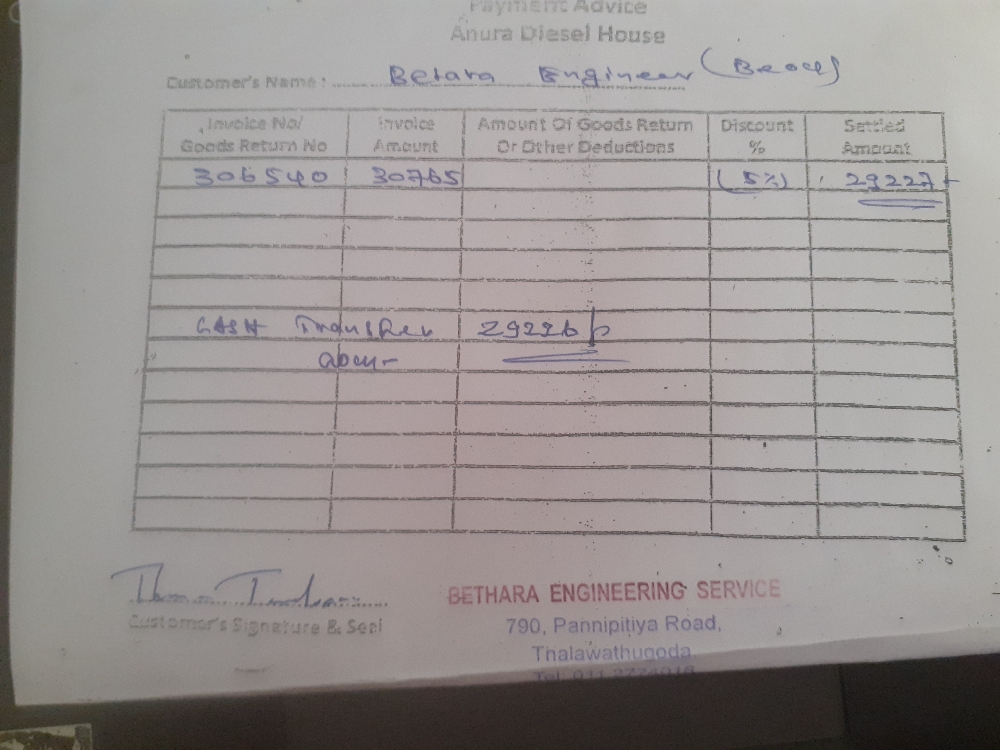 Payment Advice
Anura Diesel House
Customer's Name : Betara Engineer
Invoice No/ Goods Return No Invoice Amount Amount Of Goods Return Or Other Deductions Discount % Settled Amount
306540 30765 (5%) 29227
CASH Transfer 29226
BETHARA ENGINEERING SERVICE
790, Pannipitiya Road,
Thalawathugoda
Customer's Signature & Seal